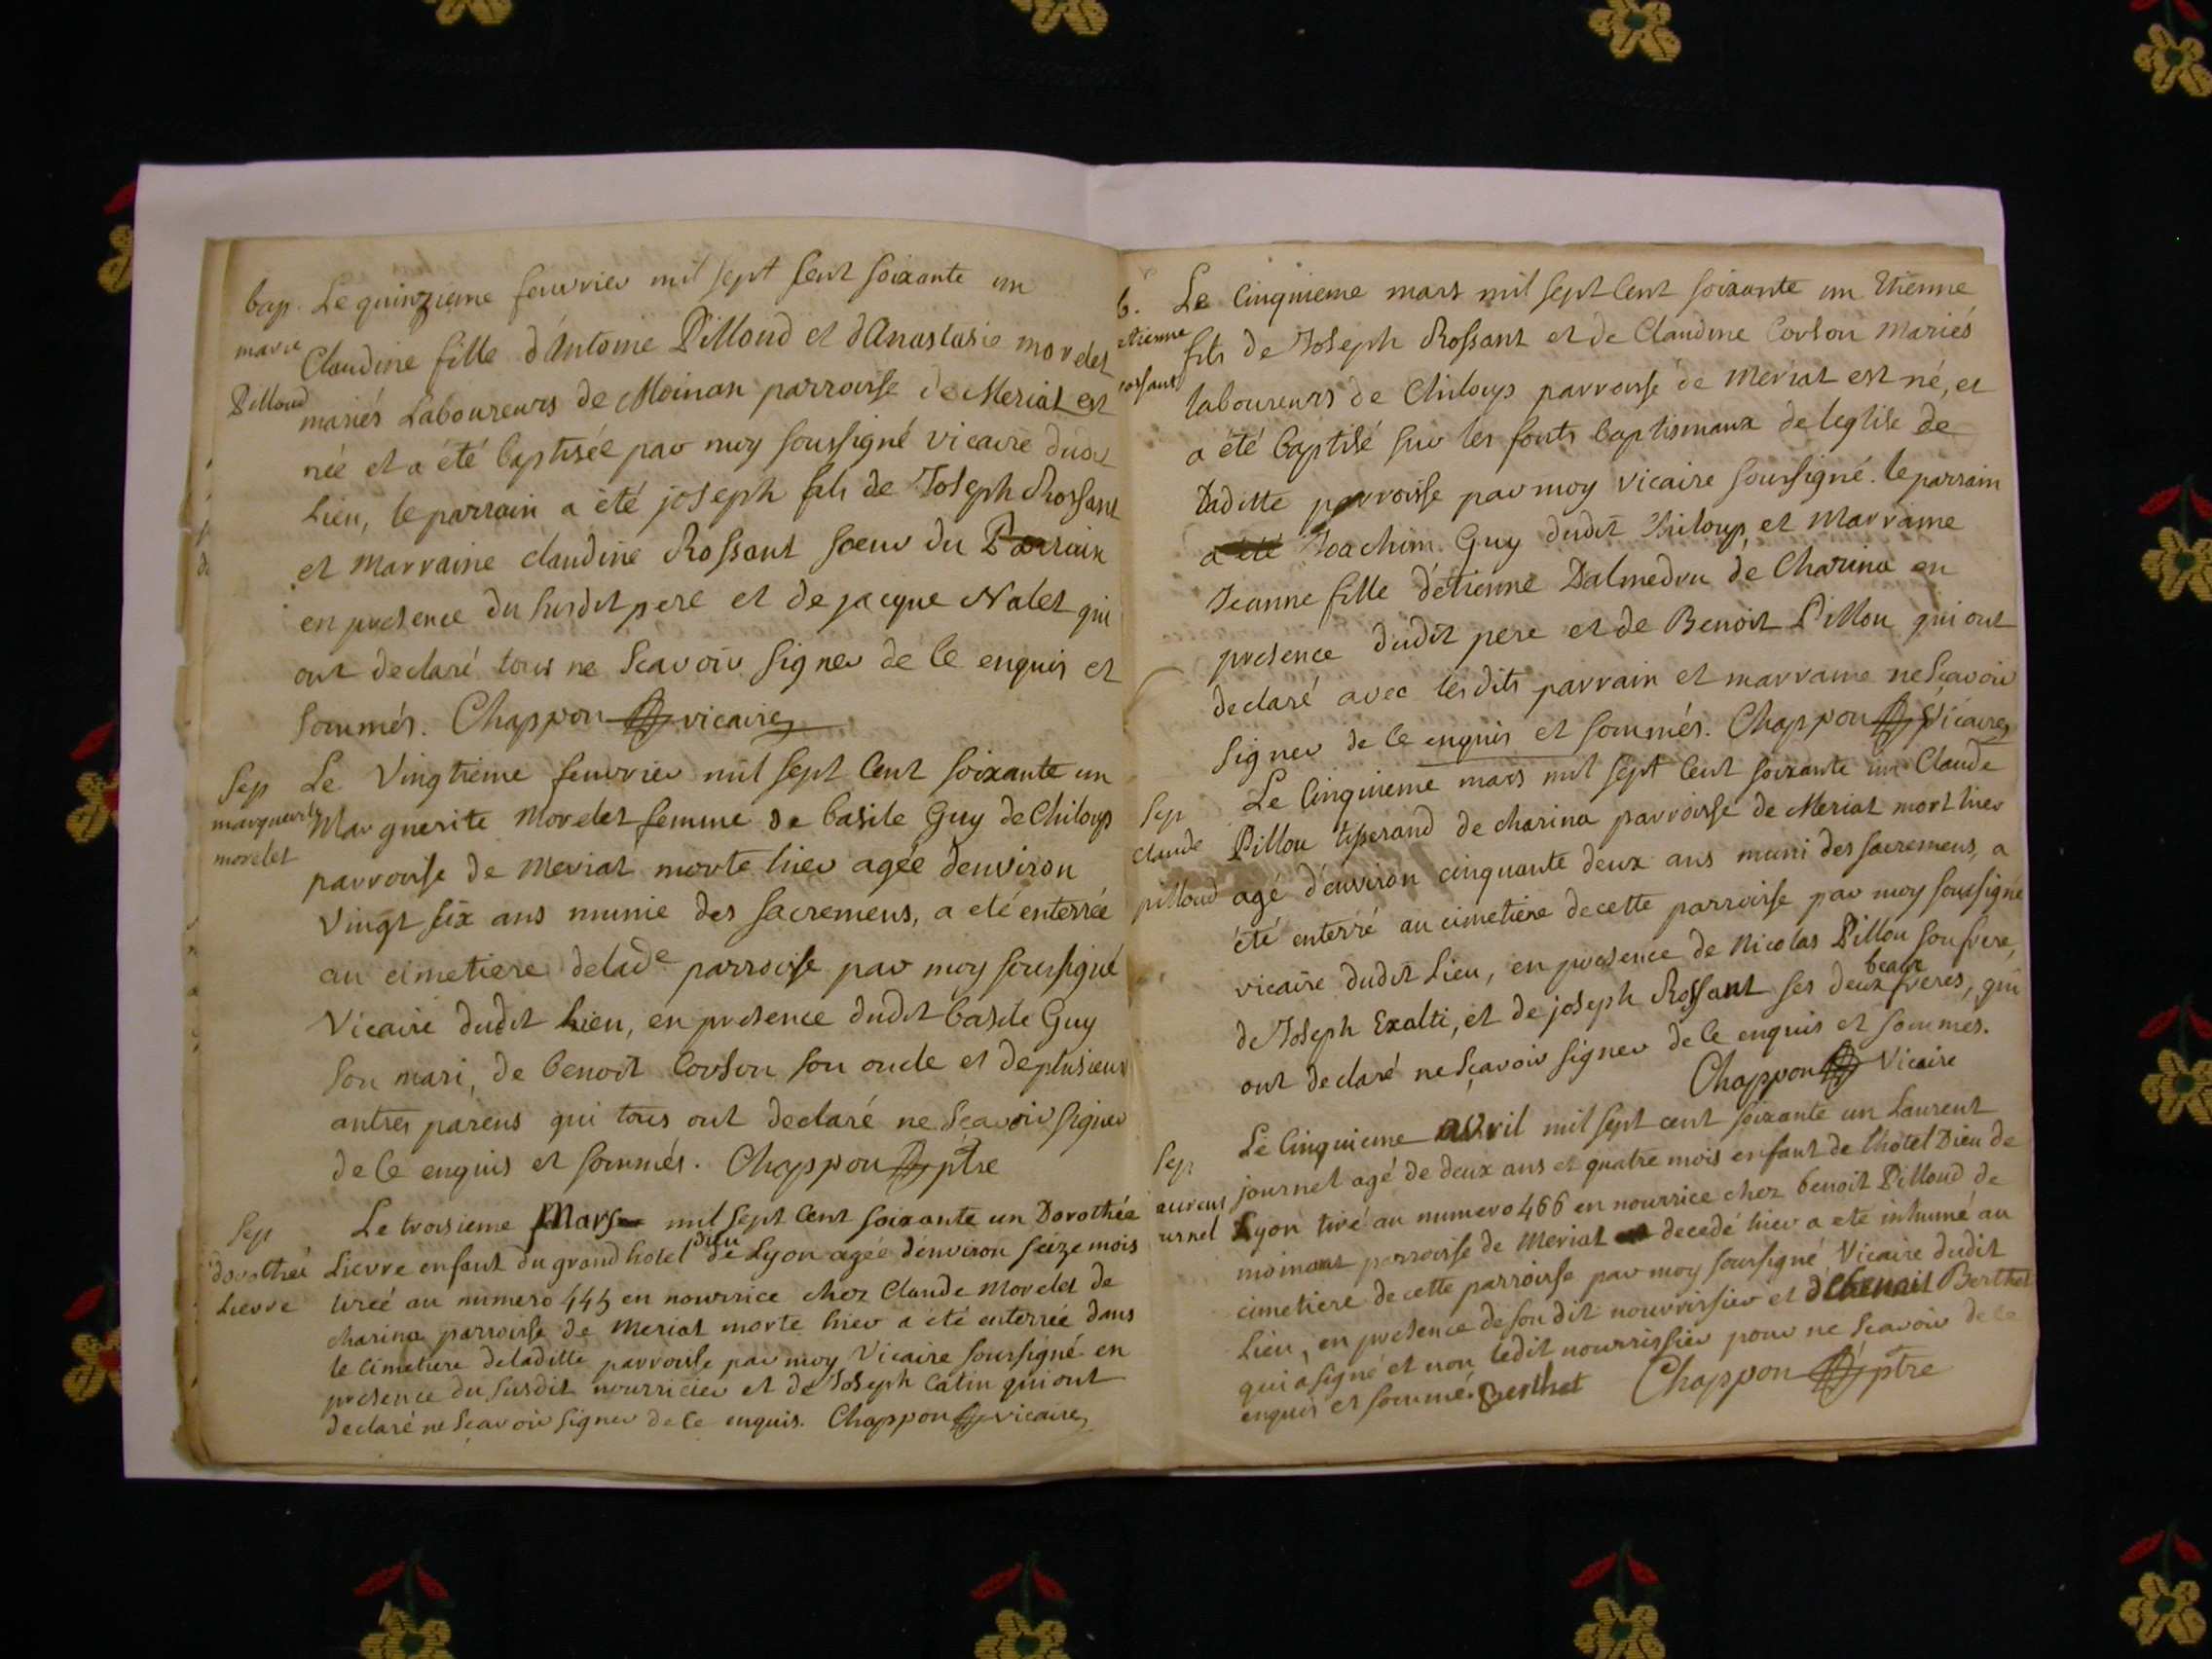 bap. Le quinzieme feuvrier mil sept sent soixante un
marie
Claudine fille d'Antoine Pilloud et d'Anastasie morelet
Pilloud
mariés Laboureurs de Moinan parroisse de Meriat est
née et a été baptisée par moy soussigné vicaire dudt
Lieu, le parrain a été joseph fils de Joseph Rossant
et Marraine claudine Rossant soeur du Parrain
en presence du susdit pere et de jacque Nalet qui
ont declaré tous ne scavoir signer de ce enquis et
sommés. Chappon vicaire
Sep Le Vingtieme feuvrier mil sept cent soixante un
marguerite Marguerite Morelet femme de basile Guy de Chiloup
morelet
parroisse de Meriat morte hier agée denviron
Vingt six ans munie des sacremens, a eté enterrée
au cimetiere delade parroisse par moy soussigné
Vicaire dudit Lieu, en presence dudit basile Guy
son mari, de benoit Corson son oncle et deplusieurs
autres parens qui tous ont declaré ne scavoir signer
de ce enquis et sommés. Chappon ptre
Sep Le troisieme Mars mil sept cent soixante un Dorothée
dorothée Lievre enfant du grand hotel Dieu de Lyon agée d'environ seize mois
Lievre tireé au numero 445 en nourrice chez Claude Morelet de
charina parroisse de Meriat morte hier a été enterrée dans
le cimetiere deladitte parroisse par moy Vicaire soussigné en
presence du susdit nourricier et de Joseph Catin qui ont
declaré ne scavoir signer de ce enquis. Chappon vicaire
b. Le Cinquieme mars mil sept Cent soixante un Etienne
etienne
fils de Joseph Rossant et de Claudine Corson Mariés
rossant
laboureurs de Chiloup parroisse de Meriat est né, et
a été baptisé sur les fonts baptismaux de leglise de
Laditte parroisse par moy vicaire soussigné. le parrain
a été Joachim Guy dudit Chiloup, et Marraine
Jeanne fille d'etienne Dalmedru de Charina en
presence dudit pere et de Benoit Pillou qui ont
declaré avec lesdits parrain et marraine ne scavoir
signer de ce enquis et sommés. Chappon Vicaire
Sep Le Cinquieme mars mil sept cent soixante un Claude
claude Pillou tisserand de charina parroisse de Meriat mort hier
pilloud agé d'environ cinquante deux ans muni des sacremens, a
été enterré au cimetiere decette parroisse par moy soussigné
vicaire dudit Lieu, en presence de Nicolas Pillou son frere,
de Joseph Exalti, et de joseph Rossant ses deux beaux freres, qui
ont declaré ne scavoir signer de ce enquis et sommés.
Chappon Vicaire
Sep Le Cinquieme avril mil sept cent soixante un Laurent
aurent journet agé de deux ans et quatre mois enfant de l'hotel Dieu de
urnel Lyon tiré au numero 466 en nourrice chez benoit Pilloud de
moinans parroisse de Meriat decedé hier a eté inhumé au
cimetiere de cette parroisse par moy soussigné Vicaire dudit
Lieu, en presence de son dit nourrissier et de benoit Berthet
qui a signé et non ledit nourrissier pour ne scavoir de ce
enquis et sommé. Berthet Chappon ptre